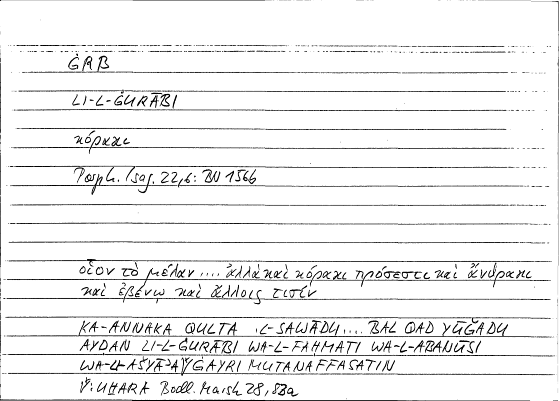 ĠRB
LI-L-ĠURĀBI
κόρακι
Porph. Isag. 22,6: BN 1566
οἷον τὸ μέλαν .... ἀλλὰ καὶ κόρακι πρόσεστι καὶ ἄνθρακι
καὶ ἐβένῳ καὶ ἄλλοις τισίν
KA-ANNAKA QULTA .L-SAWĀDU .... BAL QAD YŪǦADU
AYḌAN LI-L-ĠURĀBI WA-L-FAḤMATI WA-L-ABANŪSI
WA-L-AŠYĀʾA ĠAYRI MUTANAFFASATIN
UḪARA Bodl. Marsh 28, 58a